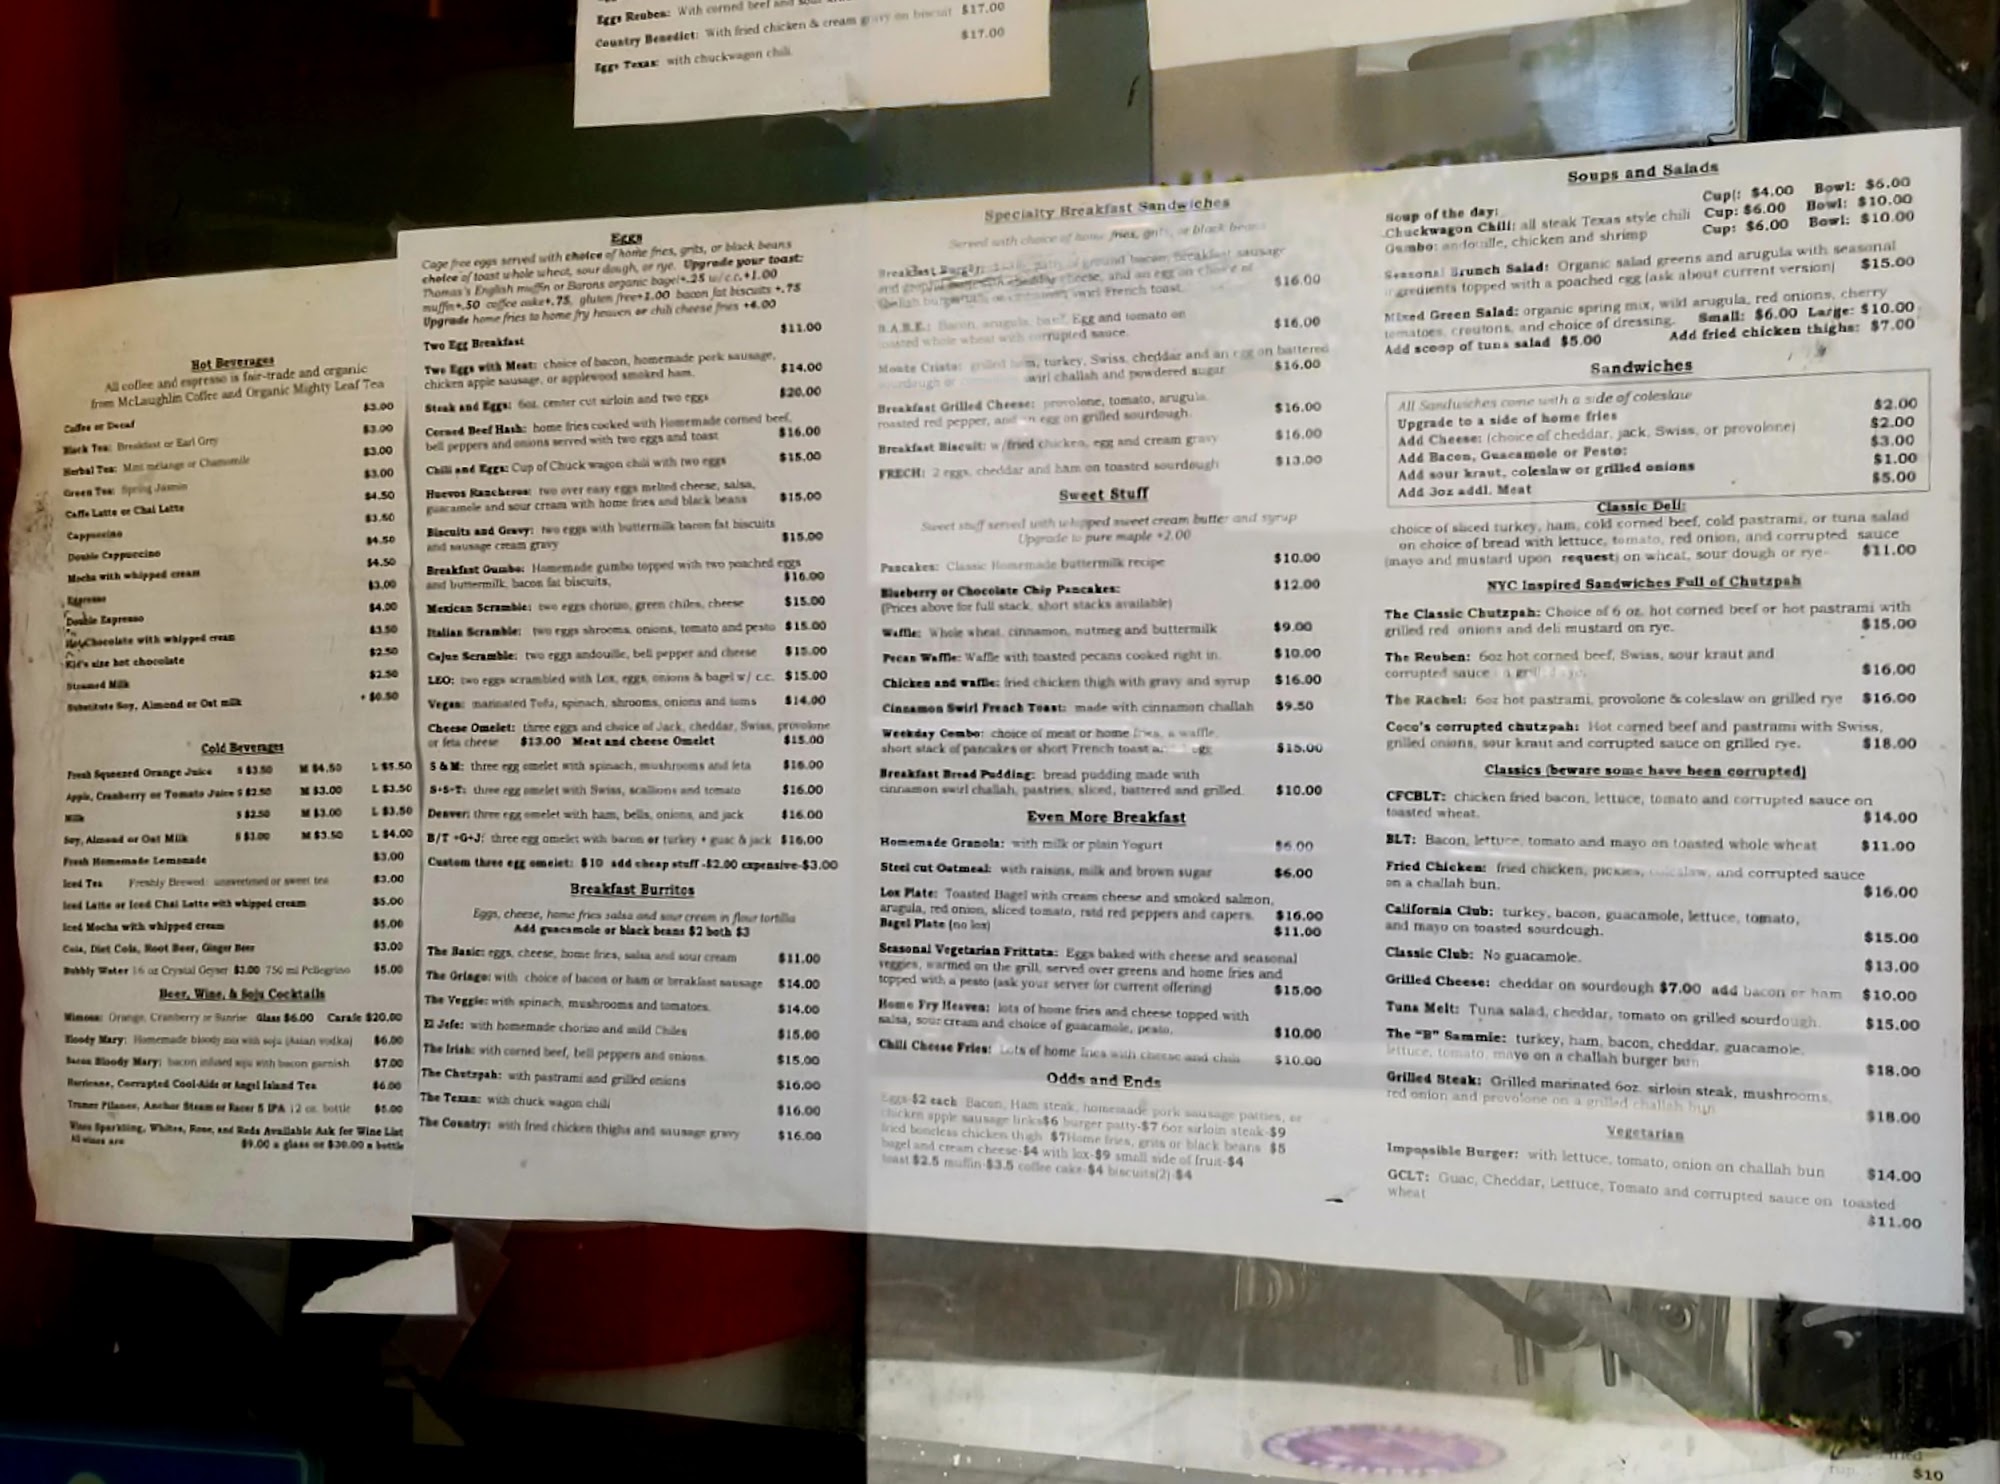 Eggs Reuben: With corned beef and
Country Benedict: With fried chicken & cream gravy on biscuit $17.00
Eggs Texas: with chuckwagon chili. $17.00
Hot Beverages
All coffee and espresso is fair-trade and organic
from McLaughlin Coffee and Organic Mighty Leaf Tea
Coffee or Decaf $3.00
Black Tea: Breakfast or Earl Grey $3.00
Herbal Tea: Mint mélange or Chamomile $3.00
Green Tea: Spring Jasmin $3.00
Caffe Latte or Chai Latte $4.50
Cappuccino $3.50
Double Cappuccino $4.50
Mocha with whipped cream $4.50
Espresso $3.00
Double Espresso $4.00
Hot Chocolate with whipped cream $3.50
Kid's size hot chocolate $2.50
Steamed Milk $2.50
Substitute Soy, Almond or Oat milk + $0.50
Cold Beverages
Fresh Squeezed Orange Juice S $3.50 M $4.50 L $5.50
Apple, Cranberry or Tomato Juice S $2.50 M $3.00 L $3.50
Milk S $2.50 M $3.00 L $3.50
Soy, Almond or Oat Milk S $3.00 M $3.50 L $4.00
Fresh Homemade Lemonade $3.00
Iced Tea Freshly Brewed: unsweetened or sweet tea $3.00
Iced Latte or Iced Chai Latte with whipped cream $5.00
Iced Mocha with whipped cream $5.00
Cola, Diet Cola, Root Beer, Ginger Beer $3.00
Bubbly Water 16 oz Crystal Geyser $3.00 750 ml Pellegrino $5.00
Beer, Wine, & Soju Cocktails
Mimosa: Orange, Cranberry or Sunrise Glass $6.00 Carafe $20.00
Bloody Mary: Homemade bloody mix with soju (Asian vodka) $6.00
Bacon Bloody Mary: bacon infused soju with bacon garnish $7.00
Hurricane, Corrupted Cool-Aide or Angel Island Tea $6.00
Trumer Pilsner, Anchor Steam or Racer 5 IPA 12 oz. bottle $5.00
Wine Sparkling, Whites, Rose, and Reds Available Ask for Wine List
All wines are $9.00 a glass or $30.00 a bottle
Eggs
Cage free eggs served with choice of home fries, grits, or black beans
choice of toast whole wheat, sour dough, or rye. Upgrade your toast:
Thomas's English muffin or Barons organic bagel+.25 w/c.c.+1.00
muffin+.50 coffee cake+.75, gluten free+1.00 bacon fat biscuits +.75
Upgrade home fries to home fry heaven or chili cheese fries +6.00
Two Egg Breakfast $11.00
Two Eggs with Meat: choice of bacon, homemade pork sausage,
chicken apple sausage, or applewood smoked ham. $14.00
Steak and Eggs: 6oz. center cut sirloin and two eggs $20.00
Corned Beef Hash: home fries cooked with Homemade corned beef,
bell peppers and onions served with two eggs and toast $16.00
Chili and Eggs: Cup of Chuck wagon chili with two eggs $15.00
Huevos Rancheros: two over easy eggs melted cheese, salsa,
guacamole and sour cream with home fries and black beans $15.00
Biscuits and Gravy: two eggs with buttermilk bacon fat biscuits
and sausage cream gravy $15.00
Breakfast Gumbo: Homemade gumbo topped with two poached eggs
and buttermilk, bacon fat biscuits, $16.00
Mexican Scramble: two eggs chorizo, green chiles, cheese $15.00
Italian Scramble: two eggs shrooms, onions, tomato and pesto $15.00
Cajun Scramble: two eggs andouille, bell pepper and cheese $15.00
LEO: two eggs scrambled with Lox, eggs, onions & bagel w/ c.c. $15.00
Vegan: marinated Tofu, spinach, shrooms, onions and toms $14.00
Cheese Omelet: three eggs and choice of Jack, cheddar, Swiss, provolone
or feta cheese $13.00 Meat and cheese Omelet $15.00
S & M: three egg omelet with spinach, mushrooms and feta $16.00
S+S+T: three egg omelet with Swiss, scallions and tomato $16.00
Denver: three egg omelet with ham, bells, onions, and jack $16.00
B/T +G+J: three egg omelet with bacon or turkey + guac & jack $16.00
Custom three egg omelet: $10 add cheap stuff -$2.00 expensive-$3.00
Breakfast Burritos
Eggs, cheese, home fries salsa and sour cream in flour tortilla
Add guacamole or black beans $2 both $3
The Basic: eggs, cheese, home fries, salsa and sour cream $11.00
The Gringo: with choice of bacon or ham or breakfast sausage $14.00
The Veggie: with spinach, mushrooms and tomatoes. $14.00
El Jefe: with homemade chorizo and mild Chiles $15.00
The Irish: with corned beef, bell peppers and onions. $15.00
The Chutzpah: with pastrami and grilled onions $16.00
The Texan: with chuck wagon chili $16.00
The Country: with fried chicken thighs and sausage gravy $16.00
Specialty Breakfast Sandwiches
Served with choice of home fries, grits, or black beans
Breakfast Burger: patty of ground bacon, breakfast sausage
and cheese, and an egg on choice of
swirl French toast. $16.00
B.A.B.E.: Bacon, arugula, Egg and tomato on
toasted whole wheat with corrupted sauce. $16.00
Monte Cristo: grilled ham, turkey, Swiss, cheddar and an egg on battered
sourdough or swirl challah and powdered sugar $16.00
Breakfast Grilled Cheese: provolone, tomato, arugula,
roasted red pepper, and an egg on grilled sourdough. $16.00
Breakfast Biscuit: w/fried chicken, egg and cream gravy $16.00
FRECH: 2 eggs, cheddar and ham on toasted sourdough $13.00
Sweet Stuff
Sweet stuff served with whipped sweet cream butter and syrup
Upgrade to pure maple +2.00
Pancakes: Classic Homemade buttermilk recipe $10.00
Blueberry or Chocolate Chip Pancakes: $12.00
(Prices above for full stack, short stacks available)
Waffle: Whole wheat, cinnamon, nutmeg and buttermilk $9.00
Pecan Waffle: Waffle with toasted pecans cooked right in. $10.00
Chicken and waffle: fried chicken thigh with gravy and syrup $16.00
Cinnamon Swirl French Toast: made with cinnamon challah $9.50
Weekday Combo: choice of meat or home fries, a waffle,
short stack of pancakes or short French toast $15.00
Breakfast Bread Pudding: bread pudding made with
cinnamon swirl challah, pastries, sliced, battered and grilled. $10.00
Even More Breakfast
Homemade Granola: with milk or plain Yogurt $6.00
Steel cut Oatmeal: with raisins, milk and brown sugar $6.00
Lox Plate: Toasted Bagel with cream cheese and smoked salmon,
arugula, red onion, sliced tomato, rstd red peppers and capers. $16.00
Bagel Plate (no lox) $11.00
Seasonal Vegetarian Frittata: Eggs baked with cheese and seasonal
veggies, warmed on the grill, served over greens and home fries and
topped with a pesto (ask your server for current offering) $15.00
Home Fry Heaven: lots of home fries and cheese topped with
salsa, sour cream and choice of guacamole, pesto. $10.00
Chili Cheese Fries: Lots of home fries with cheese and chili $10.00
Odds and Ends
Eggs-$2 each Bacon, Ham steak, homemade pork sausage patties, or
chicken apple sausage links$6 burger patty-$7 6oz sirloin steak-$9
fried boneless chicken thigh $7Home fries, grits or black beans $5
bagel and cream cheese-$4 with lox-$9 small side of fruit-$4
toast $2.5 muffin-$3.5 coffee cake-$4 biscuits(2) $4
Soups and Salads
Soup of the day: Cup(: $4.00 Bowl: $6.00
Chuckwagon Chili: all steak Texas style chili Cup: $6.00 Bowl: $10.00
Gumbo: andouille, chicken and shrimp Cup: $6.00 Bowl: $10.00
Seasonal Brunch Salad: Organic salad greens and arugula with seasonal
ingredients topped with a poached egg (ask about current version) $15.00
Mixed Green Salad: organic spring mix, wild arugula, red onions, cherry
tomatoes, croutons, and choice of dressing. Small: $6.00 Large: $10.00
Add scoop of tuna salad $5.00 Add fried chicken thighs: $7.00
Sandwiches
All Sandwiches come with a side of coleslaw
Upgrade to a side of home fries $2.00
Add Cheese: (choice of cheddar, jack, Swiss, or provolone) $2.00
Add Bacon, Guacamole or Pesto: $3.00
Add sour kraut, coleslaw or grilled onions $1.00
Add 3oz addl. Meat $5.00
Classic Deli:
choice of sliced turkey, ham, cold corned beef, cold pastrami, or tuna salad
on choice of bread with lettuce, tomato, red onion, and corrupted sauce
(mayo and mustard upon request) on wheat, sour dough or rye- $11.00
NYC Inspired Sandwiches Full of Chutzpah
The Classic Chutzpah: Choice of 6 oz. hot corned beef or hot pastrami with
grilled red onions and deli mustard on rye. $15.00
The Reuben: 6oz hot corned beef, Swiss, sour kraut and
corrupted sauce $16.00
The Rachel: 6oz hot pastrami, provolone & coleslaw on grilled rye $16.00
Coco's corrupted chutzpah: Hot corned beef and pastrami with Swiss,
grilled onions, sour kraut and corrupted sauce on grilled rye. $18.00
Classics (beware some have been corrupted)
CFCBLT: chicken fried bacon, lettuce, tomato and corrupted sauce on
toasted wheat. $14.00
BLT: Bacon, lettuce, tomato and mayo on toasted whole wheat $11.00
Fried Chicken: fried chicken, pickles, coleslaw, and corrupted sauce
on a challah bun. $16.00
California Club: turkey, bacon, guacamole, lettuce, tomato,
and mayo on toasted sourdough. $15.00
Classic Club: No guacamole. $13.00
Grilled Cheese: cheddar on sourdough $7.00 add bacon or ham $10.00
Tuna Melt: Tuna salad, cheddar, tomato on grilled sourdough. $15.00
The "B" Sammie: turkey, ham, bacon, cheddar, guacamole,
lettuce, tomato, mayo on a challah burger bun $18.00
Grilled Steak: Grilled marinated 6oz. sirloin steak, mushrooms,
red onion and provolone on a grilled challah bun $18.00
Vegetarian
Impossible Burger: with lettuce, tomato, onion on challah bun $14.00
GCLT: Guac, Cheddar, Lettuce, Tomato and corrupted sauce on toasted
wheat $11.00
$10